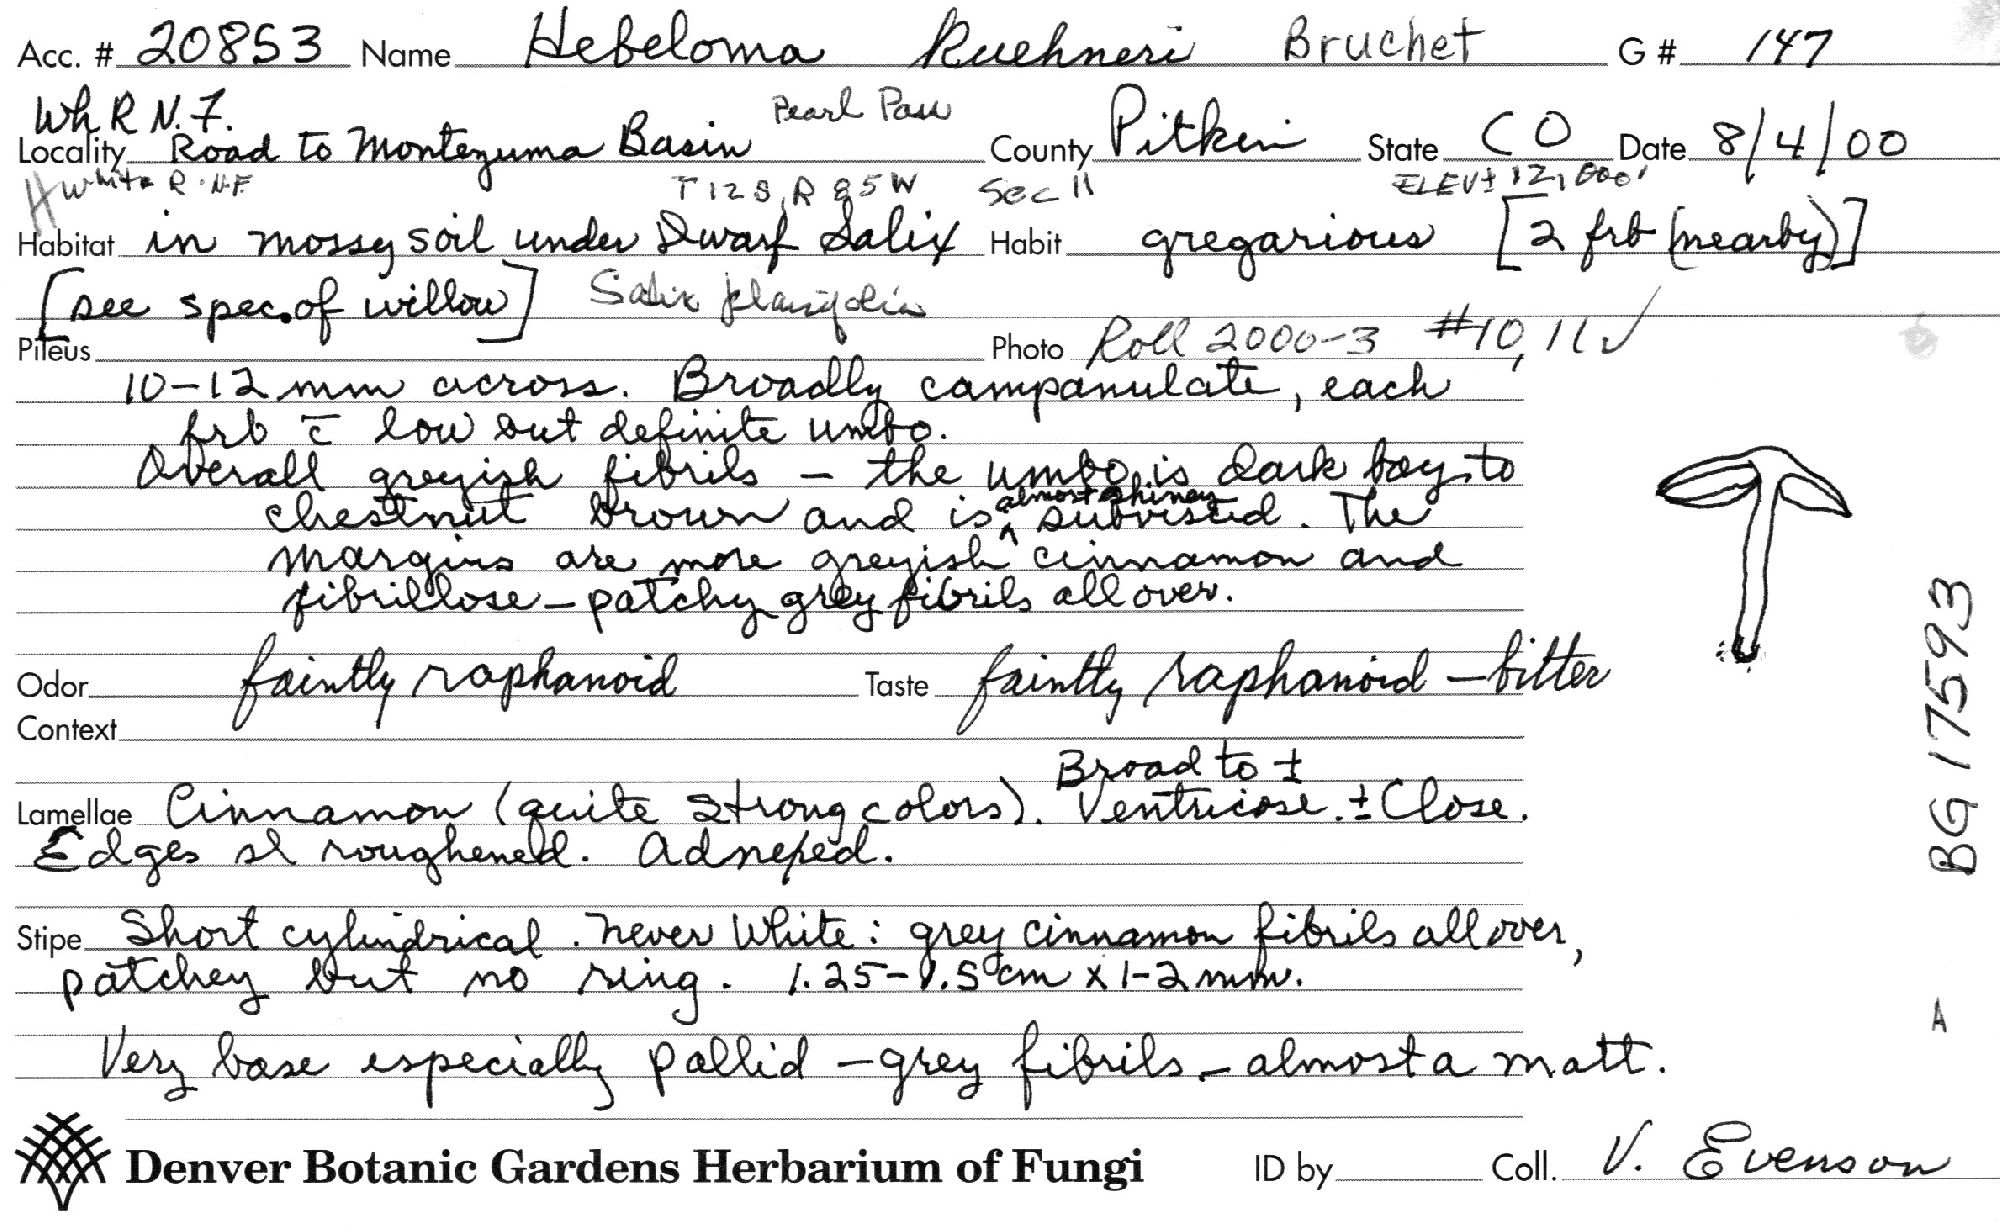 Acc. # 20853 Name Hebeloma Kuehneri Bruchet G # 147
Wh R N.F. Pearl Pass
Locality Road to Montezuma Basin County Pitkin State CO Date 8/4/00
White R. N.F T12S, R 85W Sec 11 ELEV ± 12,000'
Habitat in mossy soil under Dwarf Salix Habit gregarious [2 frb (nearby)]
[see spec. of willow] Salix planifolia
Pileus Photo Roll 2000-3 #10, 11 ✓
10-12 mm across. Broadly campanulate, each
frb c̄ low but definite umbo.
Overall greyish fibrils – the umbo is dark bay to
chestnut brown and is ^almost shiney subviscid. The
margins are more greyish cinnamon and
fibrillose – patchy grey fibrils all over.
Odor faintly raphanoid Taste faintly raphanoid – bitter
Context
Broad to ±
Lamellae Cinnamon (quite strong colors). Ventricose. ± Close.
Edges sl roughened. Adnexed.
Stipe Short cylindrical. never White: grey cinnamon fibrils all over,
patchey but no ring. 1.25-1.5 cm x 1-2 mm.
Very base especially pallid – grey fibrils – almost a matt.
Denver Botanic Gardens Herbarium of Fungi ID by Coll. V. Evenson
BG 17593
A